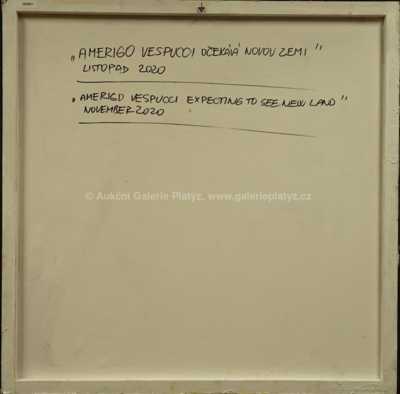 „AMERIGO VESPUCCI OČEKÁVÁ NOVOU ZEMI"
LISTOPAD 2020
„AMERIGO VESPUCCI EXPECTING TO SEE NEW LAND"
NOVEMBER 2020
© Aukční Galerie Platýz, www.galerieplatyz.cz